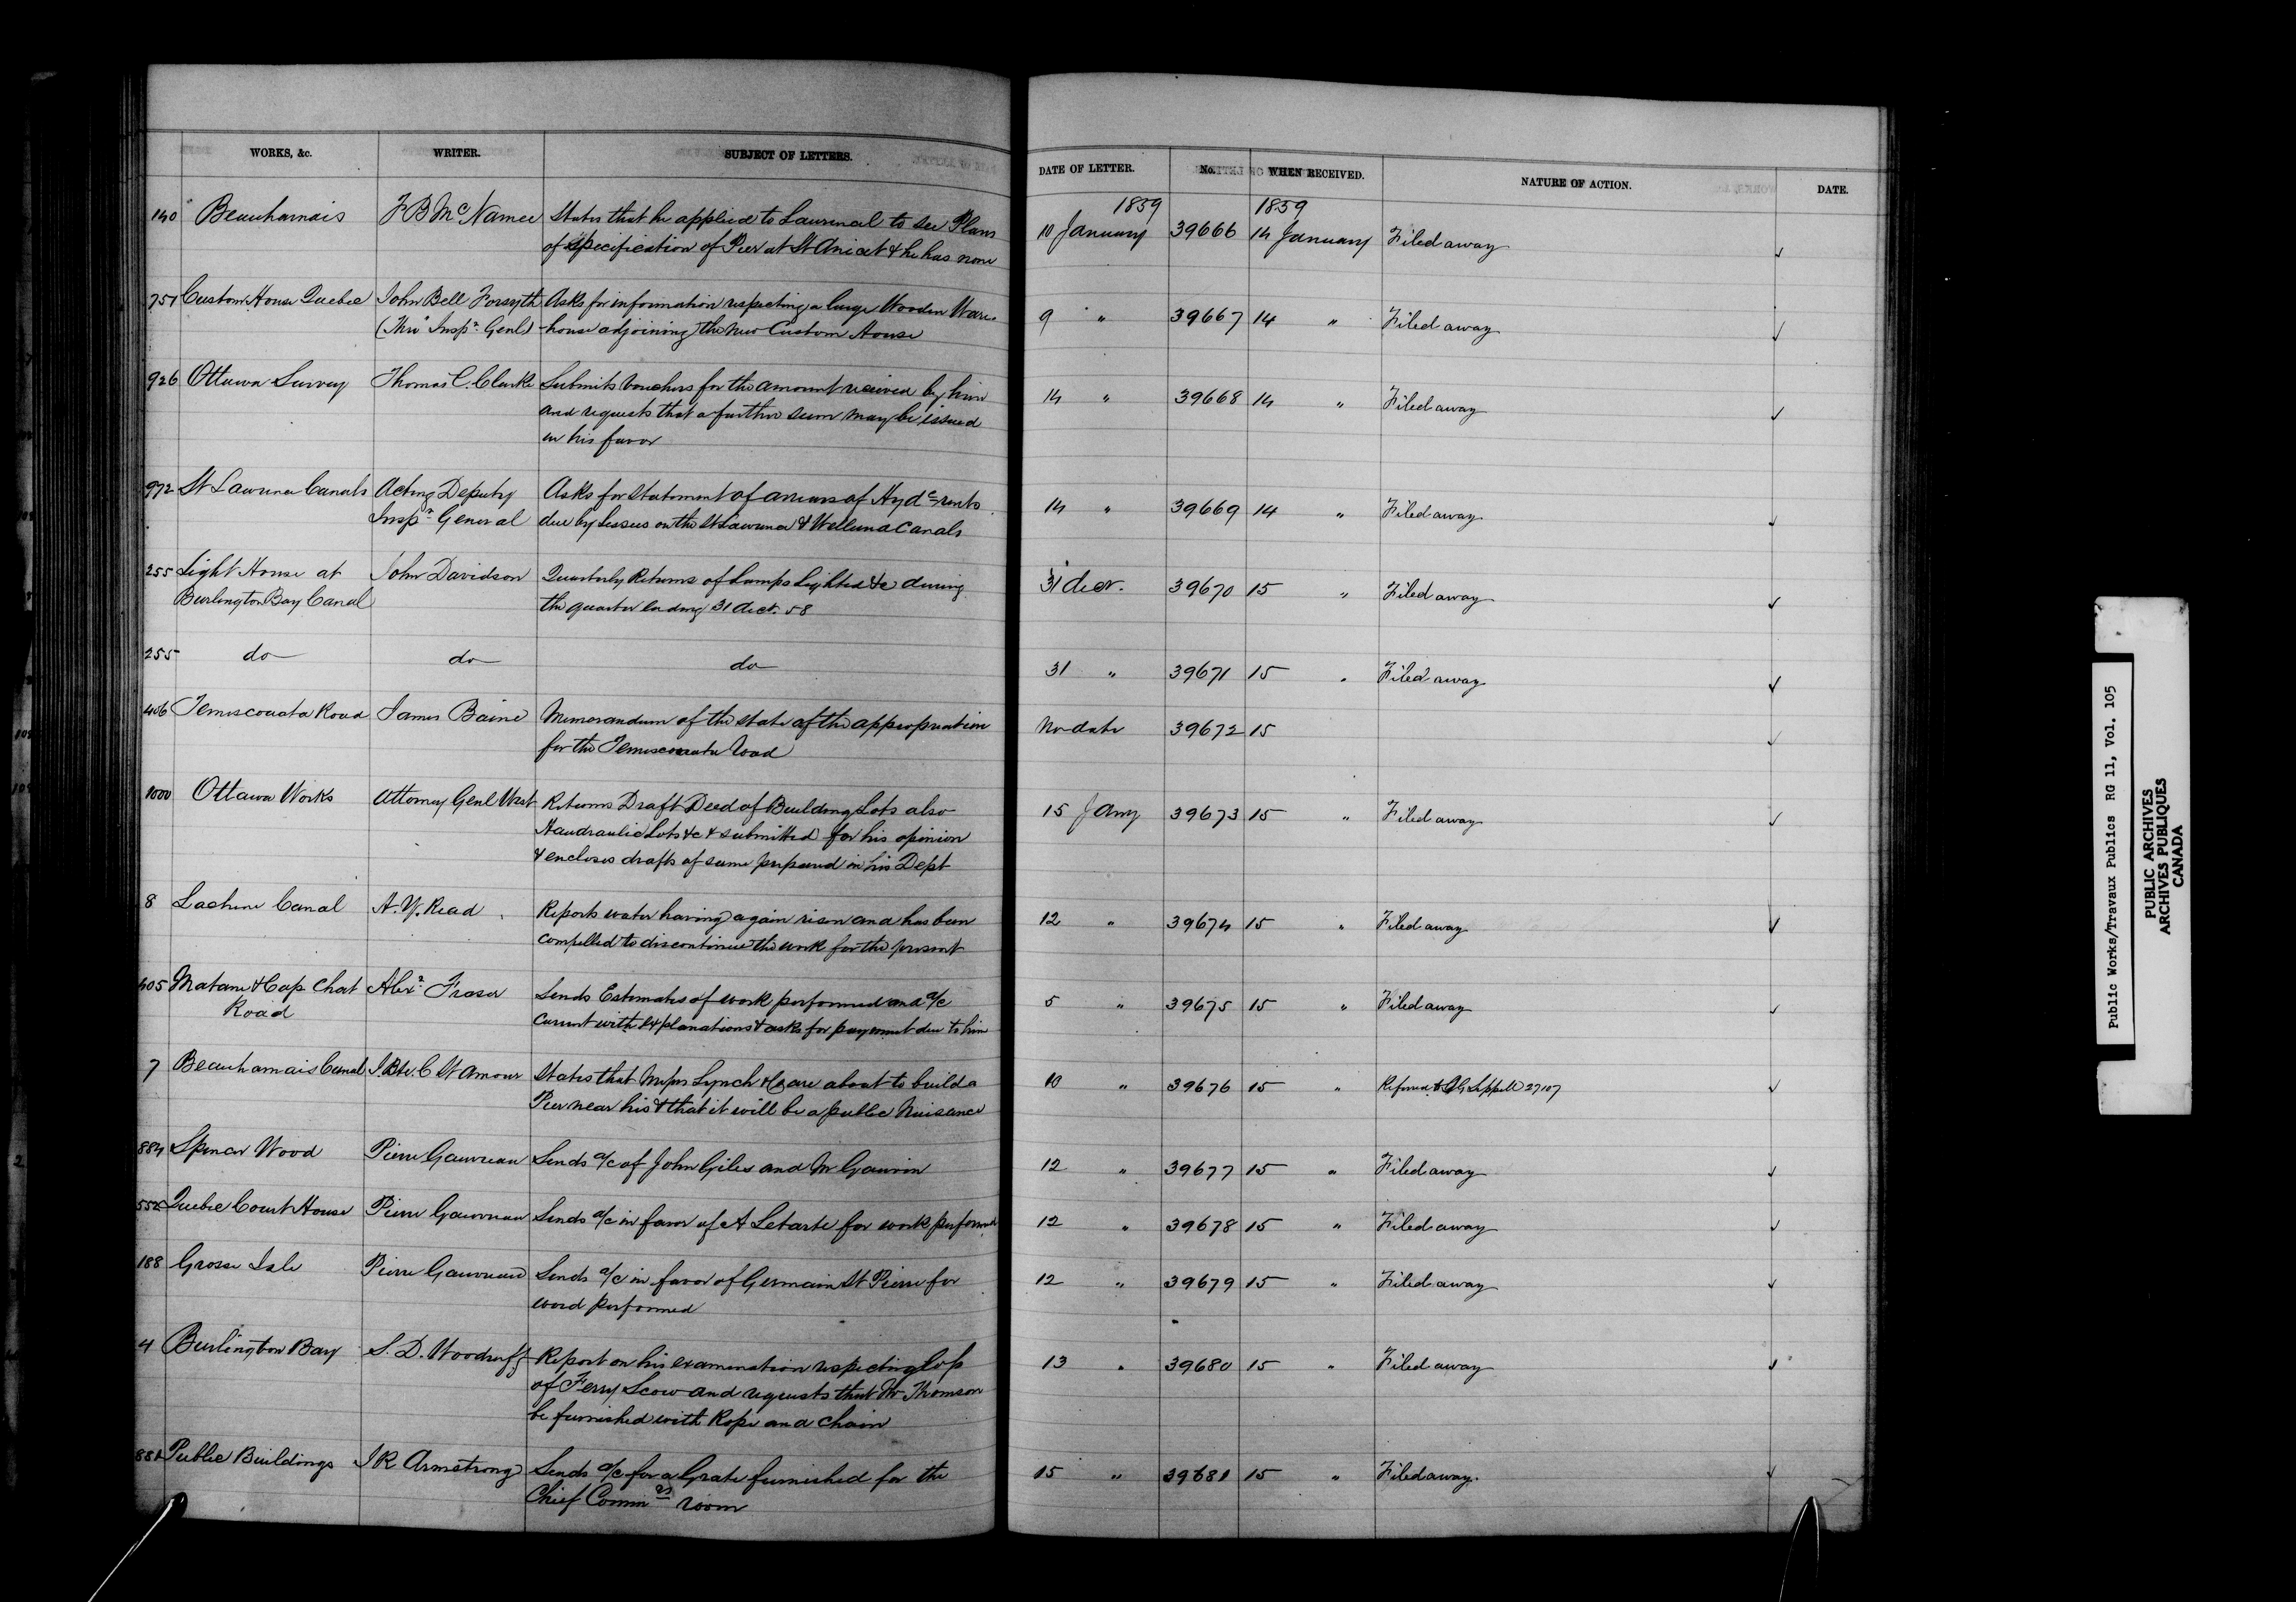 WORKS, &c. WRITER. SUBJECT OF LETTERS. DATE OF LETTER. No. WHEN RECEIVED. NATURE OF ACTION. DATE.
1859 1859
140 Beauharnais F B McNamee States that he applied to Laurencel to see Plans 10 January 39666 14 January Filed away
of specification of Pier at St Anicet & he has none
751 Custom House Quebec John Bell Forsyth Asks for information respecting a large Wooden Ware- 9 " 39667 14 " Filed away
(Thro' Inspr Genl) house adjoining the new Custom House
926 Ottawa Survey Thomas C. Clarke Submits vouchers for the amount received by him 14 " 39668 14 " Filed away
and requests that a further sum may be issued
in his favor
972 St Lawrence Canals Acting Deputy Asks for statement of arrears of Hydc rents 14 " 39669 14 " Filed away
Inspr General due by Lessees on the St Lawrence & Welland Canals
255 Light House at John Davidson Quarterly Returns of Lamps Lighted &c during 31 Decr. 39670 15 " Filed away
Burlington Bay Canal the quarter ending 31 Decr. 58
255 do do do 31 " 39671 15 " Filed away
406 Temiscouata Road James Baine Memorandum of the state of the appropriation No date 39672 15
for the Temiscouata Road
1000 Ottawa Works Attorney Genl West Returns Draft Deed of Building Lots also 15 Jany 39673 15 " Filed away
Haudraulic Lots &c & submitted for his opinion
& encloses drafts of same prepared in his Dept
8 Lachine Canal A. Y. Read Reports water having again risen and has been 12 " 39674 15 " Filed away
compelled to discontinue the work for the present
405 Matane & Cap Chat Alexr Fraser Sends Estimates of work performed and a/c 5 " 39675 15 " Filed away
Road Current with explanations & asks for payment due to him
7 Beauharnais Canal J. Bte. C St Amour States that Messrs Lynch & Co are about to build a 10 " 39676 15 " Referred to 27107
Pier near his & that it will be a public Nuisance
884 Spencer Wood Pierre Gauvreau Sends a/c of John Giles and Mr Gauvin 12 " 39677 15 " Filed away
552 Quebec Court House Pierre Gauvreau Sends a/c in favor of A Letarte for work performed 12 " 39678 15 " Filed away
188 Grosse Isle Pierre Gauvreau Sends a/c in favor of Germain St Pierre for 12 " 39679 15 " Filed away
word performed
4 Burlington Bay S. D. Woodruff Report on his examination respecting loss 13 " 39680 15 " Filed away
of Ferry Scow and requests that Mr Thomson
be furnished with Rope and Chain
881 Public Buildings J R Armstrong Sends a/c for a Grate furnished for the 15 " 39681 15 " Filed away.
Chief Commrs room
Public Works/Travaux Publics RG 11, Vol. 105
PUBLIC ARCHIVES
ARCHIVES PUBLIQUES
CANADA